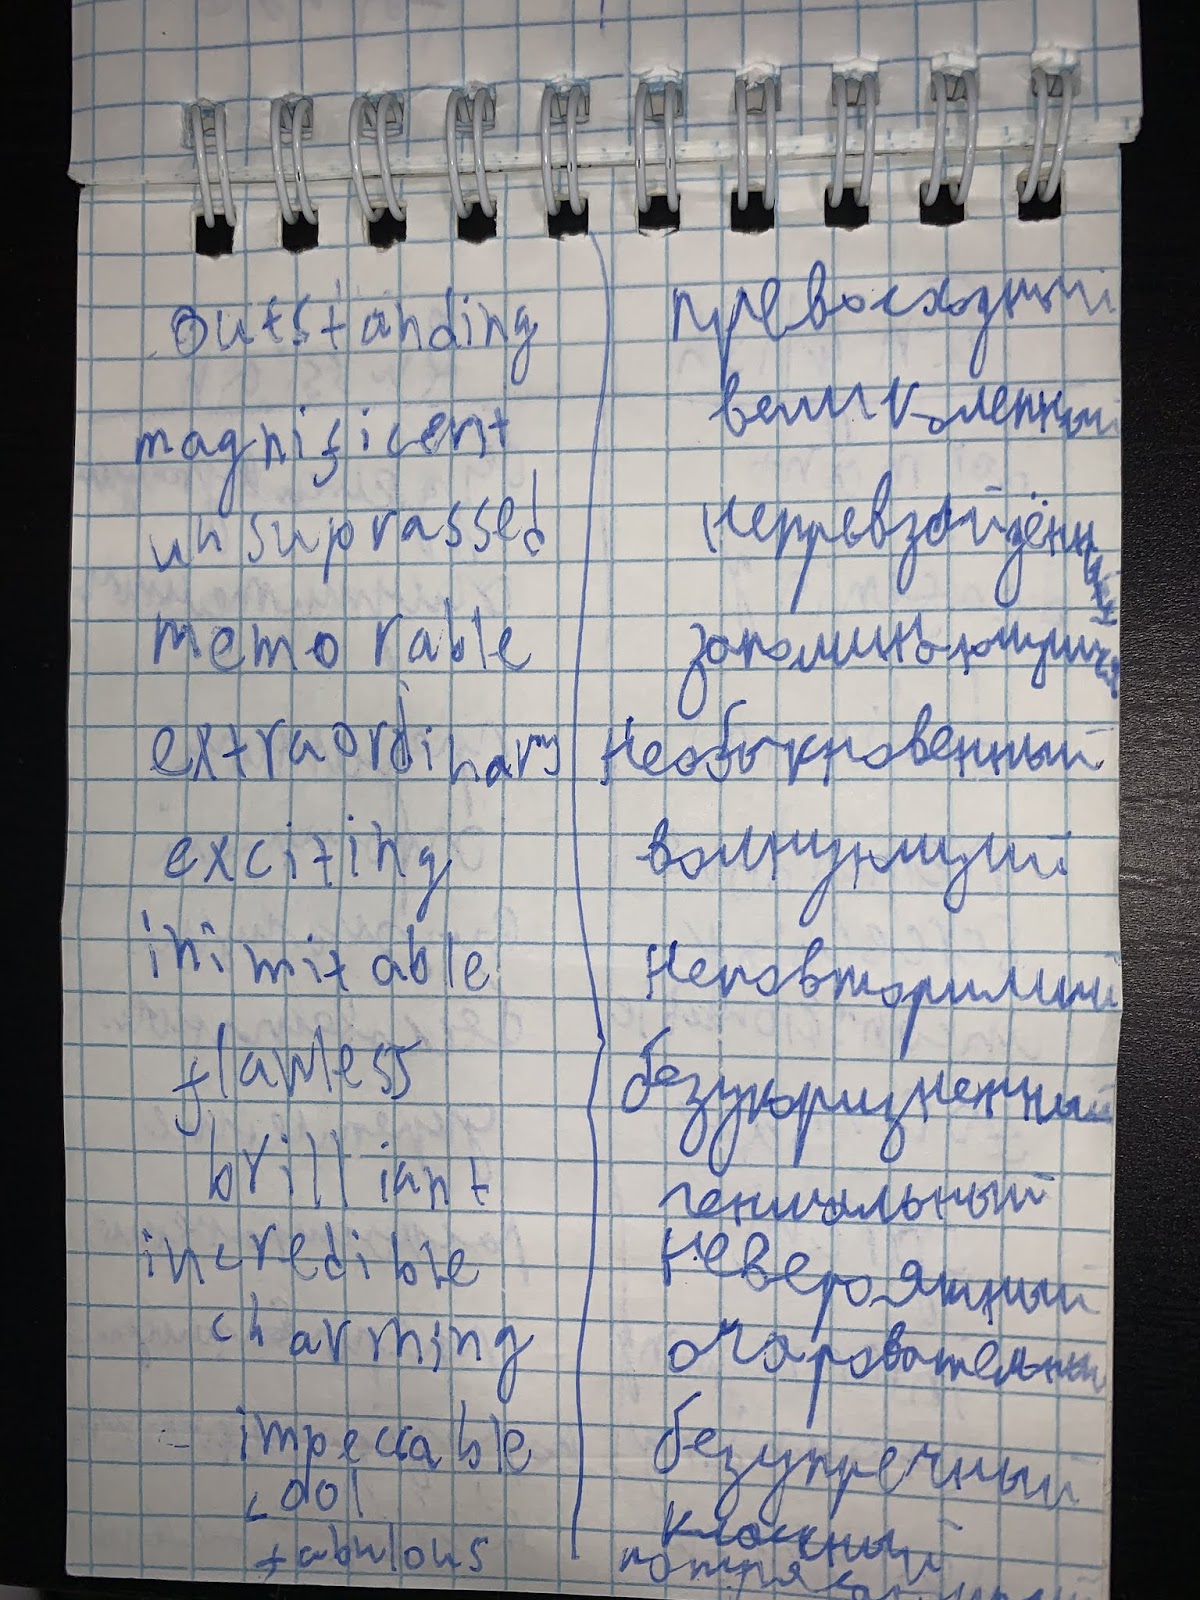 outstanding превосходный
magnificent великолепный
unsuprassed непревзойдённый
memorable запоминающийся
extraordinary необыкновенный
exciting волнующий
inimitable неповторимый
flawless безукоризненный
brilliant гениальный
incredible невероятный
charming очаровательный
- impeccable безупречный
классный
fabulous потрясающий